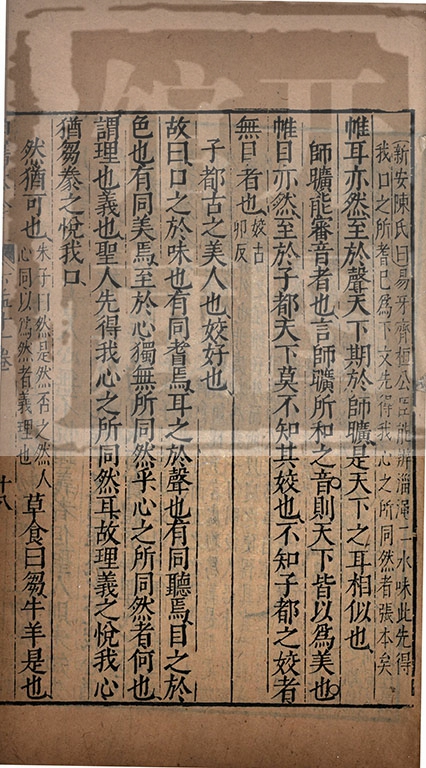 新安陳氏曰易牙齊桓公臣能辨淄澠二水味此先得
我口之所耆已為下文先得我心之所同然者張本矣
惟耳亦然至於聲天下期於師曠是天下之耳相似也
師曠能審音者也言師曠所和之音則天下皆以為美也
惟目亦然至於子都天下莫不知其姣也不知子都之姣者
無目者也姣古
卯反
子都古之美人也姣好也
故曰口之於味也有同耆焉耳之於聲也有同聽焉目之於
色也有同美焉至於心獨無所同然乎心之所同然者何也
謂理也義也聖人先得我心之所同然耳故理義之悅我心
猶芻豢之悅我口
然猶可也朱子曰然是然否之然人
心同以為然者義理也草食曰芻牛羊是也
卷
十八